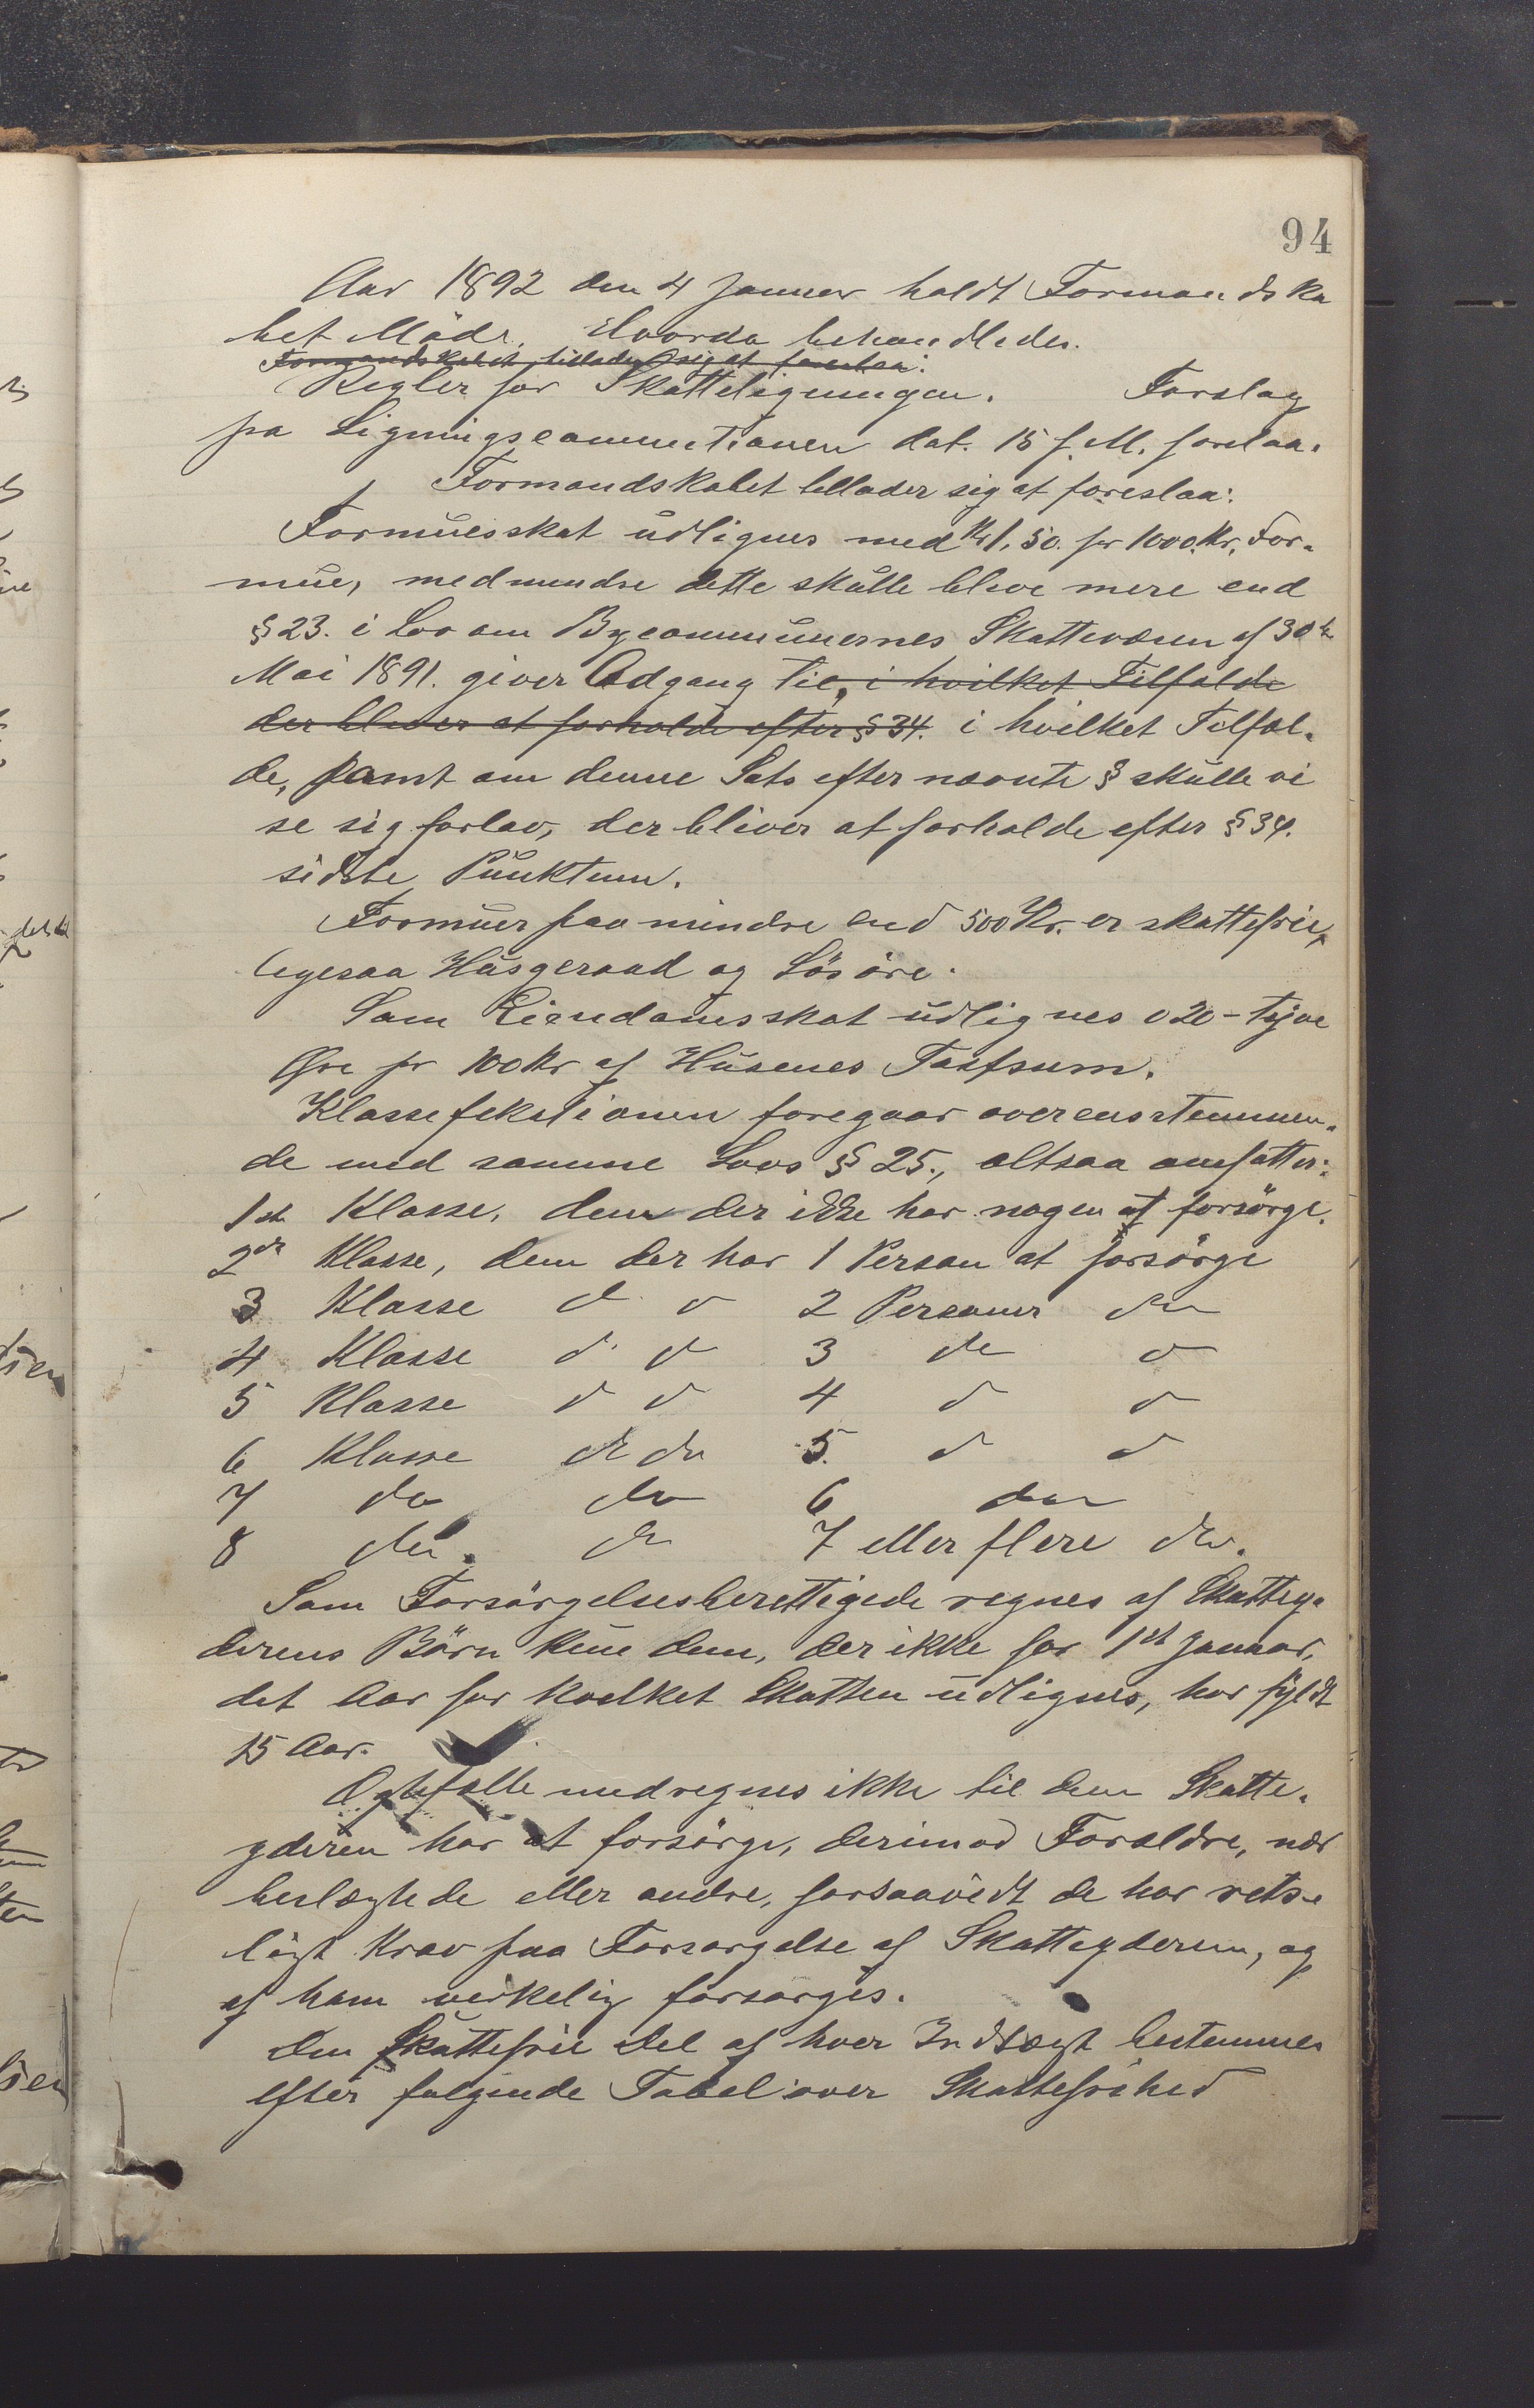 94
Aar 1892 den 4 Januar holdt Formandska
bet Möde. Hvorda behandledes.
Formandskabet tillader sig at foreslaa:
Regler for Skatteligningen. Forslag
fra Ligningscommitionen dat. 15 f. M. forelaa.
Formandskabet tillader sig at foreslaa:
Formuesskat udlignes med Kr 1,50. pr 1000. Kr. For-
mue, medmindre dette skulde blive mere end
§ 23. i Lov om Bycommunernes Skattevæsen af 30te
Mai 1891. giver Adgang til, i hvilket Tilfælde
der bliver at forholde efter § 34. i hvilket Tilfæl-
de, samt om denne Sats efter nævnte § skulle vi
se sig forlav, der bliver at forholde efter § 34.
sidste Punktum.
Formuer paa mindre end 500 Kr. er skattefrie,
ligesaa Husgeraad og Lösöre.
Som Eiendomsskat udlignes 0 20 - tyve
Öre pr 100 Kr af Husenes Taxtsum.
Klassefikationen foregaar overensstemmen-
de med samme Lovs § 25., altsaa omfatter:
1ste Klasse, dem der ikke har nogen at forsörge.
2den Klasse, dem der har 1 Person at forsörge
3 Klasse d d 2 Personer do
4 Klasse d d 3 do d
5 Klasse d d 4 d d
6 Klasse do do 5. d d
7 do do 6 do
8 do do 7 eller flere do.
Som Forsörgelsesberettigede regnes af Skattey-
derens Börn kun dem, der ikke for 1ste Januar,
det Aar for hvilket Skatten udlignes, har fyldt
15 Aar.
Ægtefælle medregnes ikke til dem Skatte-
yderen har at forsörge, derimod Forældre, nær
beslægtede eller andre, forsaavidt de har rets-
ligt Krav paa Forsørgelse af Skatteyderen, og
af ham virkelig forsørges.
Den Skattefrie Del af hver Indtægt bestemmes
efter følgende Tabel over Skattefrihed